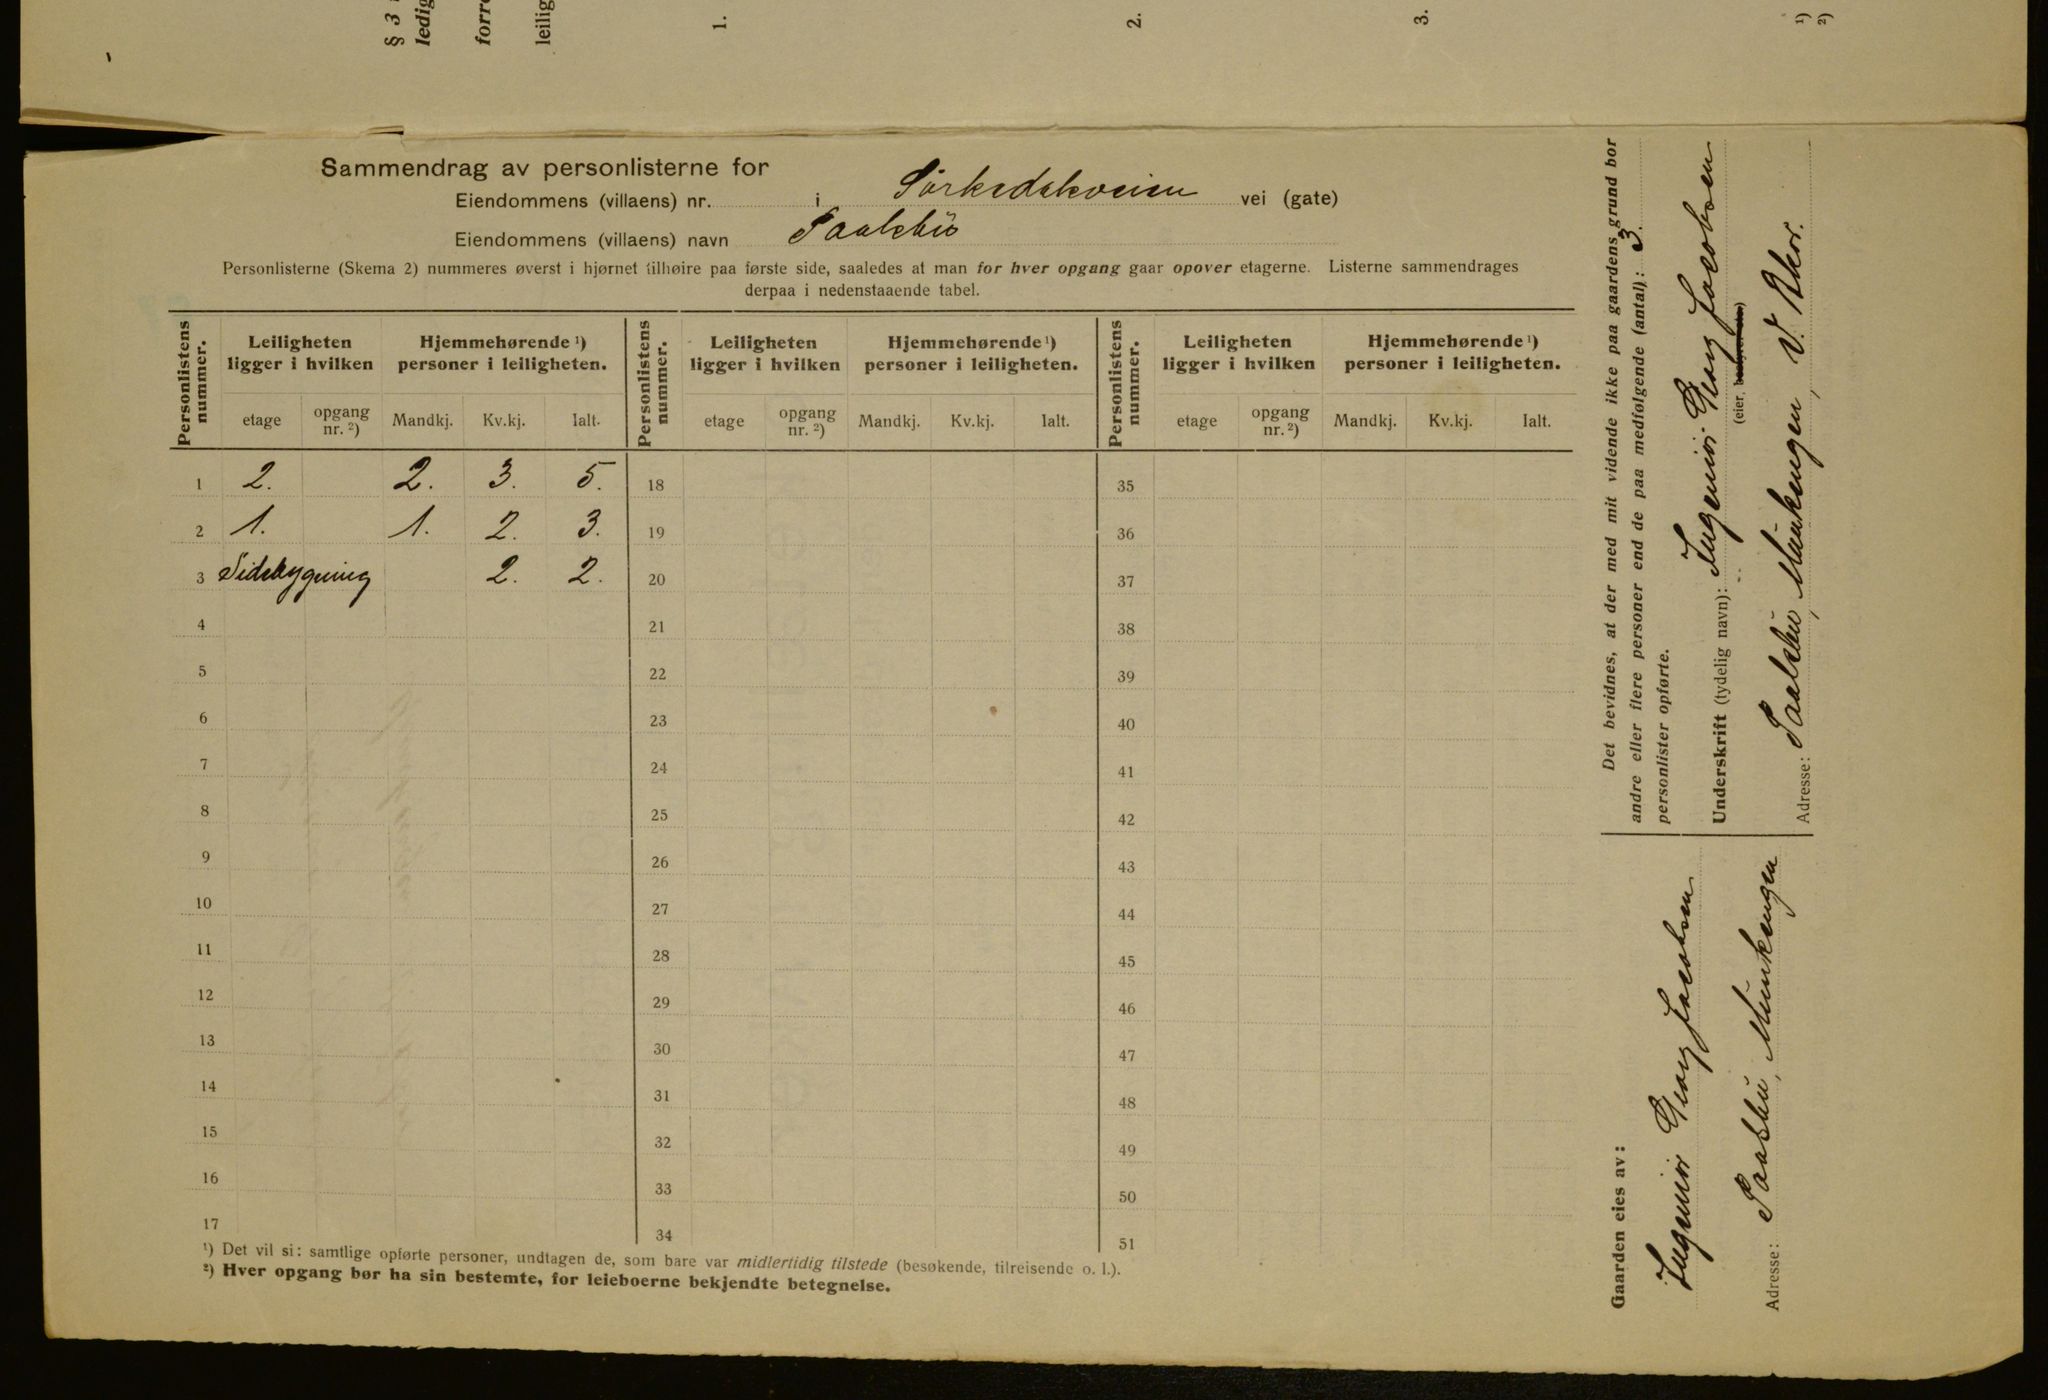 § 3
ledig
forre
leilig
1.
2.
3.
1)
2)
Sammendrag av personlisterne for
Eiendommens (villaens) nr. i Sörkedalsveien vei (gate)
Eiendommens (villaens) navn Paalsbu
Personlisterne (Skema 2) nummeres øverst i hjørnet tilhøire paa første side, saaledes at man for hver opgang gaar opover etagerne. Listerne sammendrages
derpaa i nedenstaaende tabel.
Personlistens nummer. Leiligheten ligger i hvilken Hjemmehørende 1) personer i leiligheten. Personlistens nummer. Leiligheten ligger i hvilken Hjemmehørende 1) personer i leiligheten. Personlistens nummer. Leiligheten ligger i hvilken Hjemmehørende 1) personer i leiligheten.
etage opgang nr. 2) Mandkj. Kv.kj. Ialt. etage opgang nr. 2) Mandkj. Kv.kj. Ialt. etage opgang nr. 2) Mandkj. Kv.kj. Ialt.
1 2. 2. 3. 5. 18 35
2 1. 1. 2. 3. 19 36
3 Sidebygning 2. 2. 20 37
4 21 38
5 22 39
6 23 40
7 24 41
8 25 42
9 26 43
10 27 44
11 28 45
12 29 46
13 30 47
14 31 48
15 32 49
16 33 50
17 34 51
1) Det vil si: samtlige opførte personer, undtagen de, som bare var midlertidig tilstede (besøkende, tilreisende o. l.).
2) Hver opgang bør ha sin bestemte, for leieboerne bekjendte betegnelse.
Det bevidnes, at der med mit vidende ikke paa gaardens grund bor
andre eller flere personer end de paa medfølgende (antal): 3.
personlister opførte.
Underskrift (tydelig navn): Ingeniör Georg Jacobsen
(eier,
Adresse: Paalsbu, Munkengen, V. Aker.
Gaarden eies av:
Ingeniör Georg Jacobsen
Adresse: Paalsbu, Munkengen